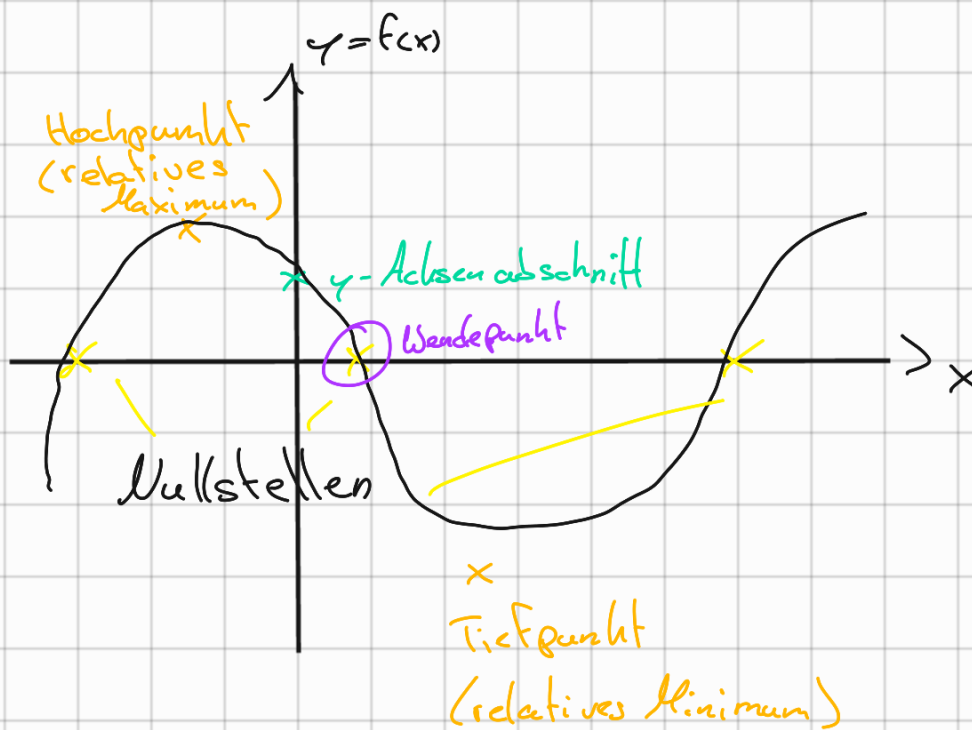 y=f(x)
Hochpunkt
(relatives
Maximum)
y-Achsenabschnitt
Wendepunkt
x
Nullstellen
Tiefpunkt
(relatives Minimum)